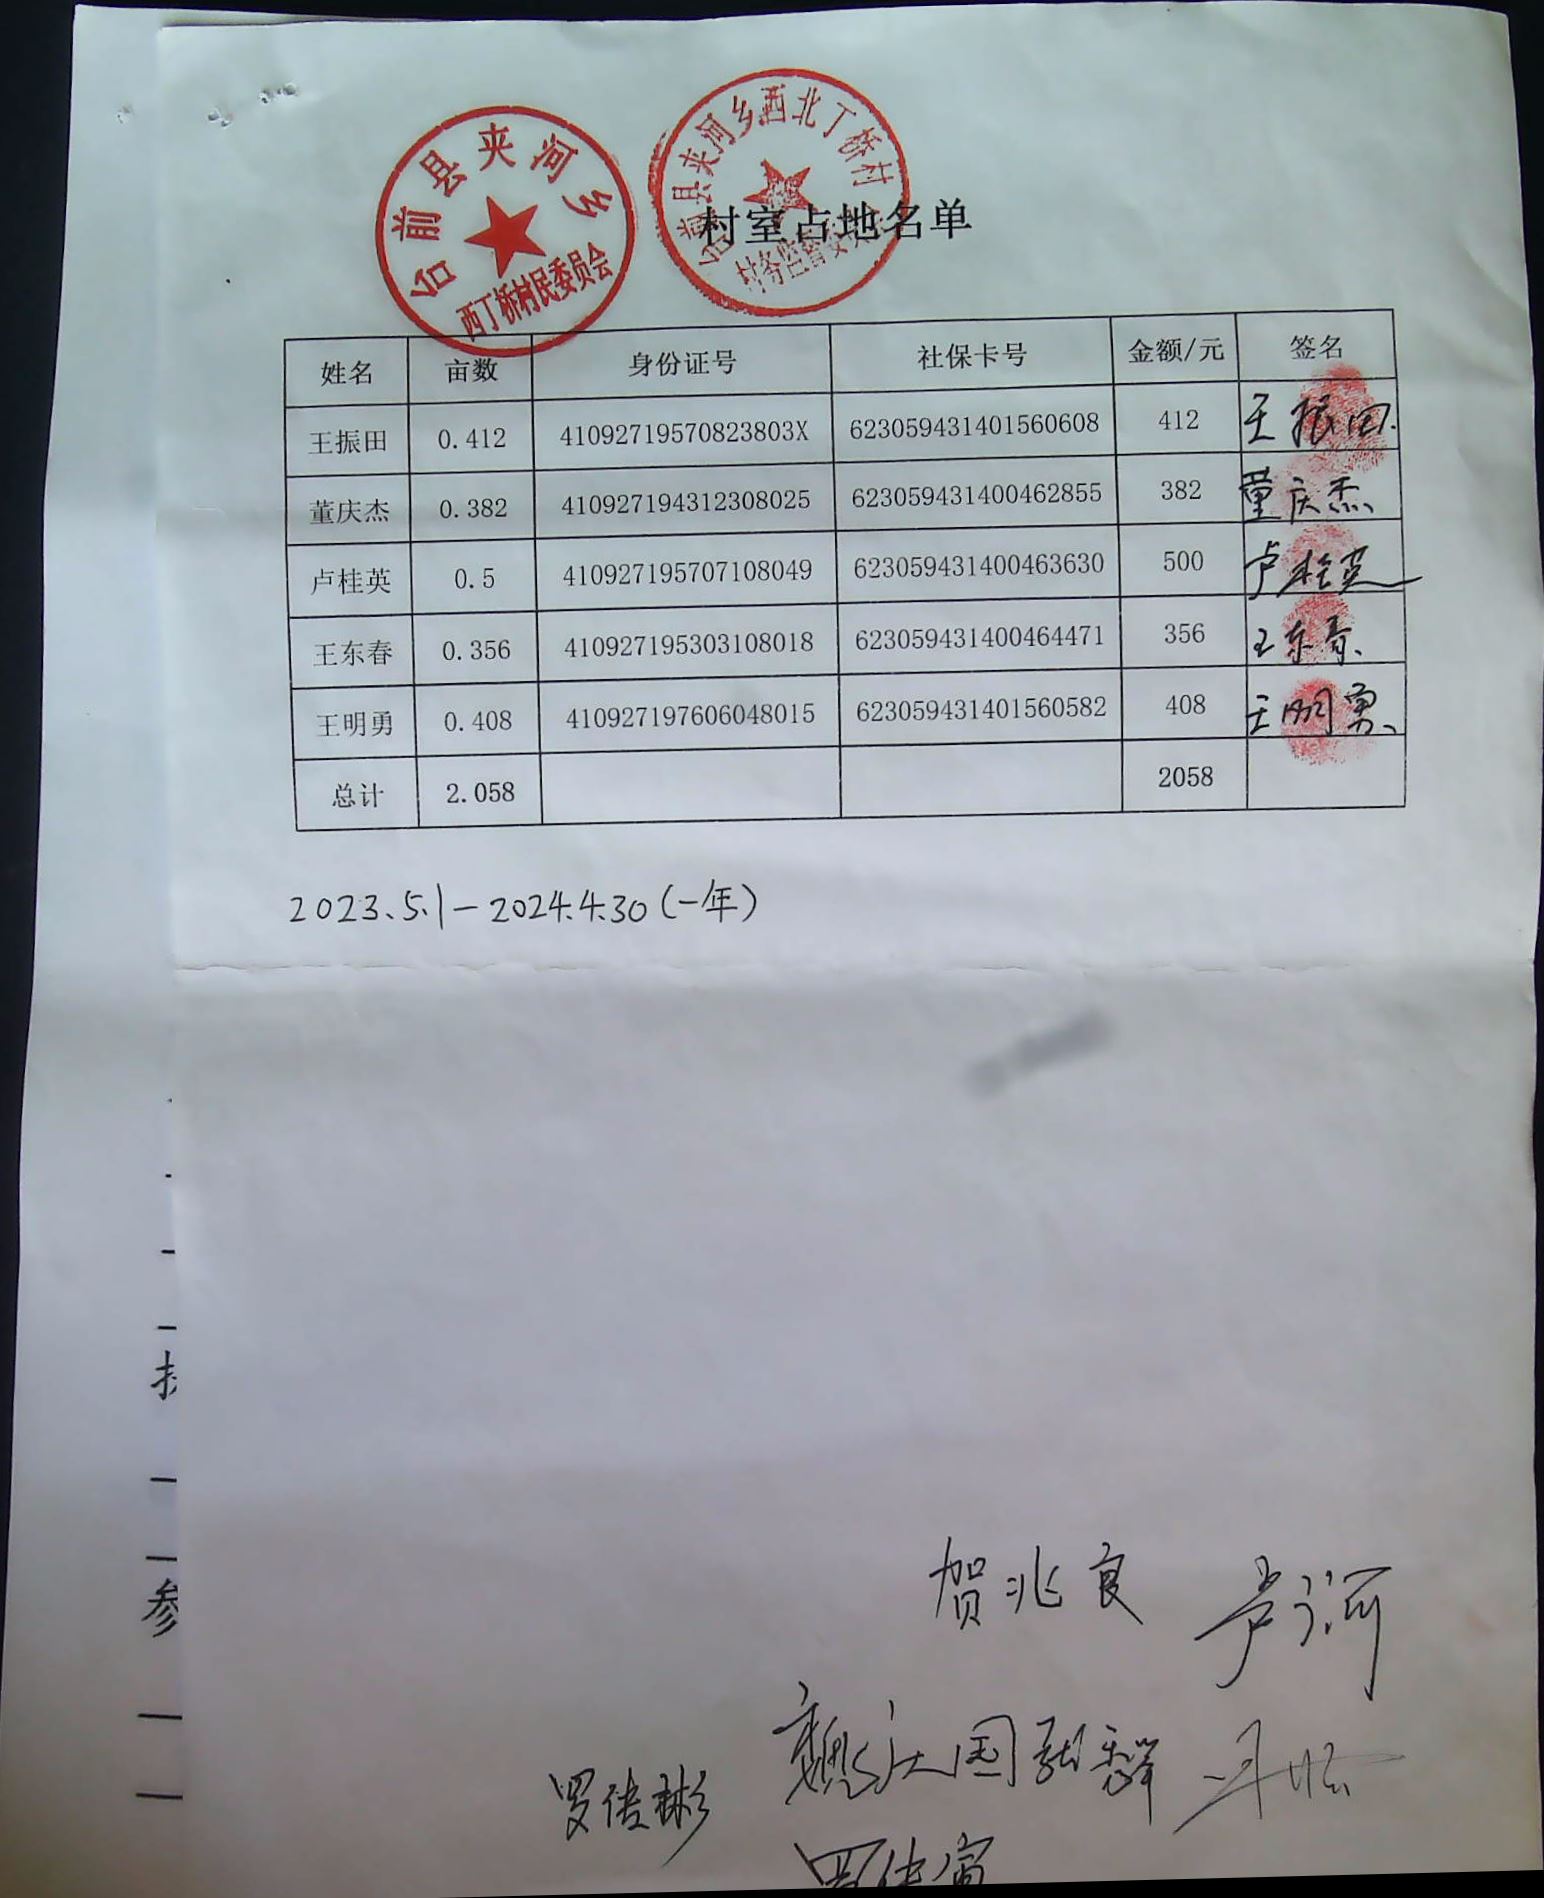 台前县夹河乡
西丁桥村民委员会
台前县夹河乡西北丁桥村
村务监督委员会
村室占地名单
姓名 亩数 身份证号 社保卡号 金额/元 签名
王振田 0.412 41092719570823803X 623059431401560608 412 王振田
董庆杰 0.382 410927194312308025 623059431400462855 382 董庆杰
卢桂英 0.5 410927195707108049 623059431400463630 500 卢桂英
王东春 0.356 410927195303108018 623059431400464471 356 王东春
王明勇 0.408 410927197606048015 623059431401560582 408 王明勇
总计 2.058 2058
2023.5.1-2024.4.30(一年)
参
贺兆良
罗传彬